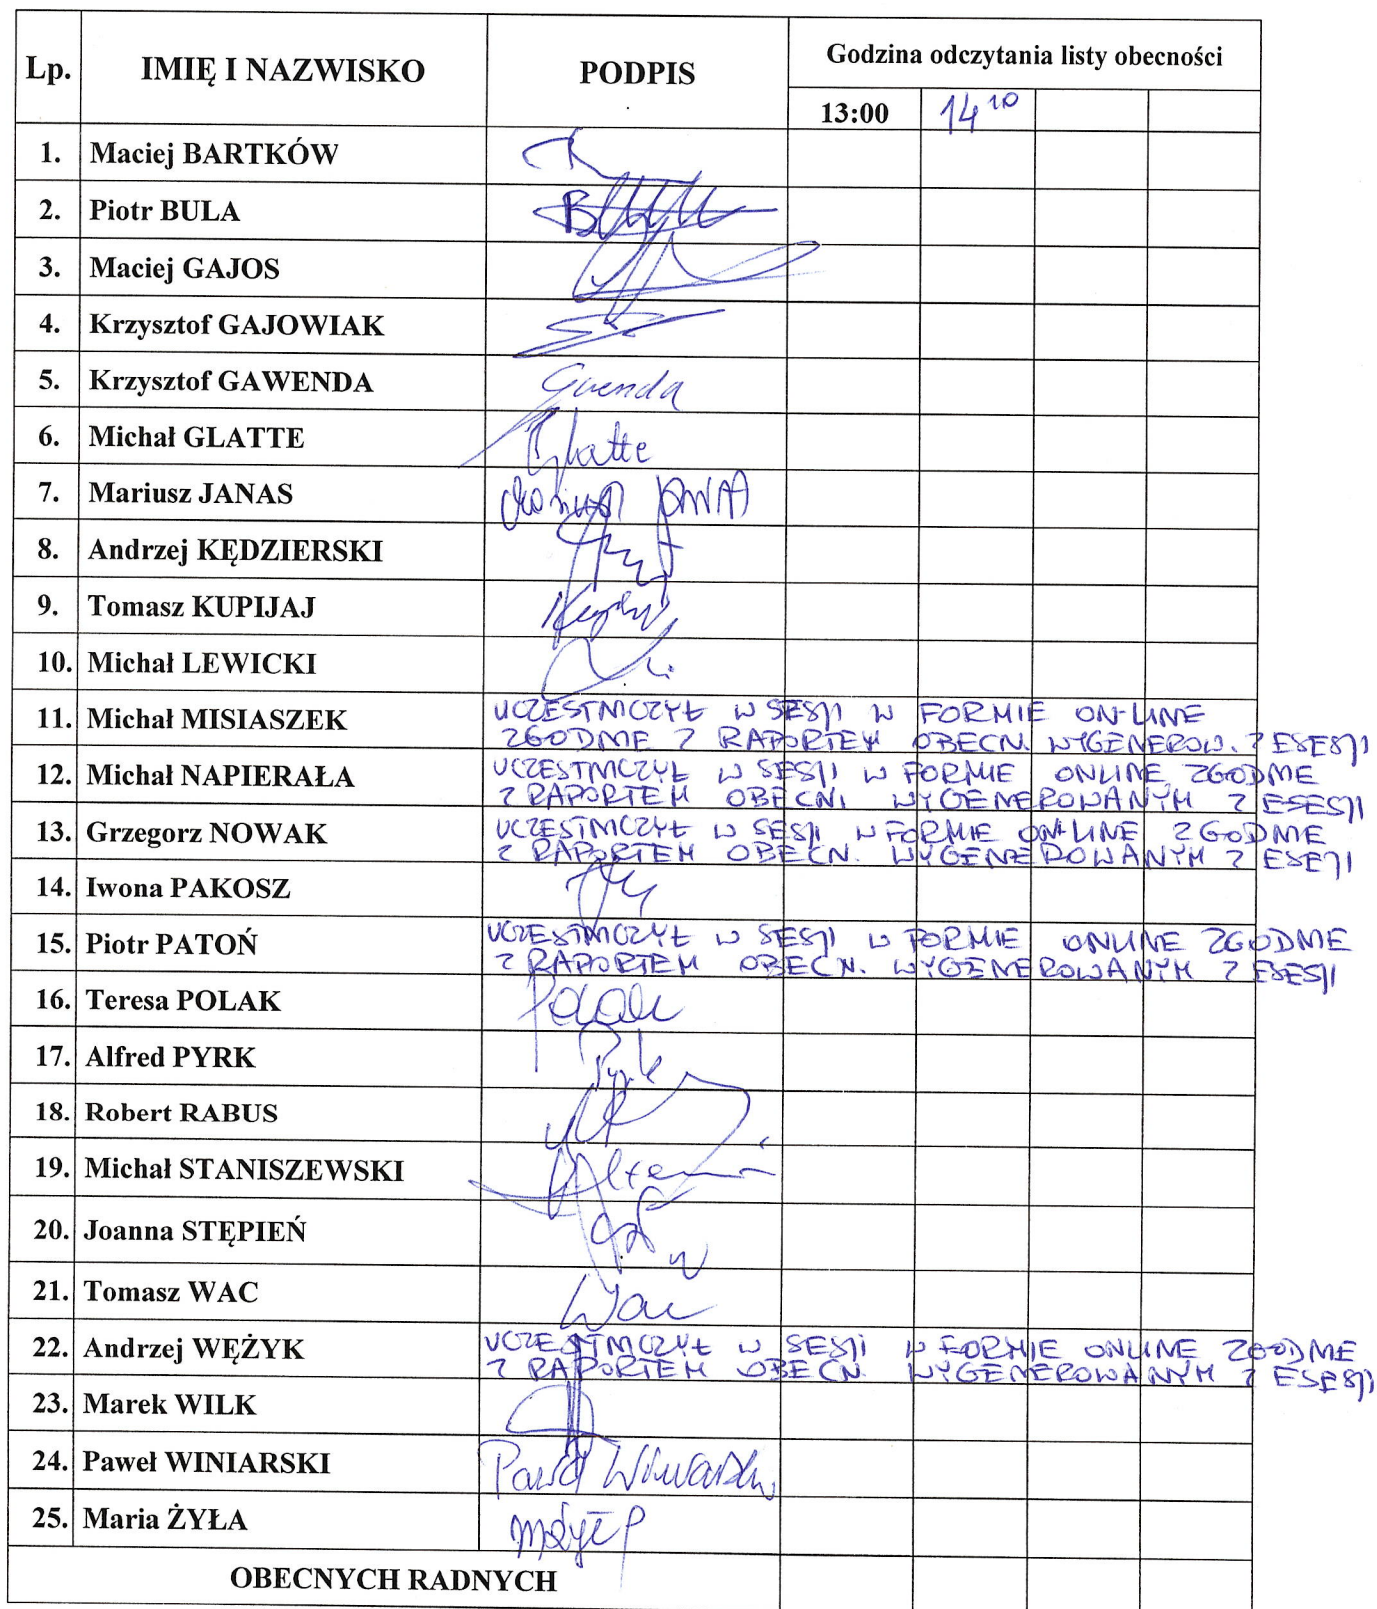 Lp. IMIĘ I NAZWISKO PODPIS Godzina odczytania listy obecności
13:00 14 10
1. Maciej BARTKÓW
2. Piotr BULA
3. Maciej GAJOS
4. Krzysztof GAJOWIAK
5. Krzysztof GAWENDA
6. Michał GLATTE Glatte
7. Mariusz JANAS
8. Andrzej KĘDZIERSKI
9. Tomasz KUPIJAJ
10. Michał LEWICKI
11. Michał MISIASZEK UCZESTNICZYŁ W SESJI W FORMIE ON-LINE
ZGODNIE Z RAPORTEM OBECN. WYGENEROW. Z ESESJI
12. Michał NAPIERAŁA UCZESTNICZYŁ W SESJI W FORMIE ONLINE ZGODNIE
Z RAPORTEM OBECN. WYGENEROWANYM Z ESESJI
13. Grzegorz NOWAK UCZESTNICZYŁ W SESJI W FORMIE ON-LINE ZGODNIE
Z RAPORTEM OBECN. WYGENEROWANYM Z ESEJI
14. Iwona PAKOSZ
15. Piotr PATOŃ UCZESTNICZYŁ W SESJI W FORMIE ONLINE ZGODNIE
Z RAPORTEM OBECN. WYGENEROWANYM Z ESESJI
16. Teresa POLAK Polak
17. Alfred PYRK Pyrk
18. Robert RABUS
19. Michał STANISZEWSKI
20. Joanna STĘPIEŃ
21. Tomasz WAC Wac
22. Andrzej WĘŻYK UCZESTNICZYŁ W SESJI W FORMIE ONLINE ZGODNIE
Z RAPORTEM OBECN. WYGENEROWANYM Z ESESJI
23. Marek WILK
24. Paweł WINIARSKI Paweł Winiarski
25. Maria ŻYŁA
OBECNYCH RADNYCH